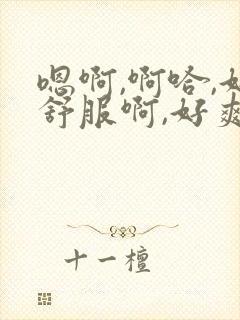 嗯啊,啊哈,好
舒服啊,好爽
十一檀